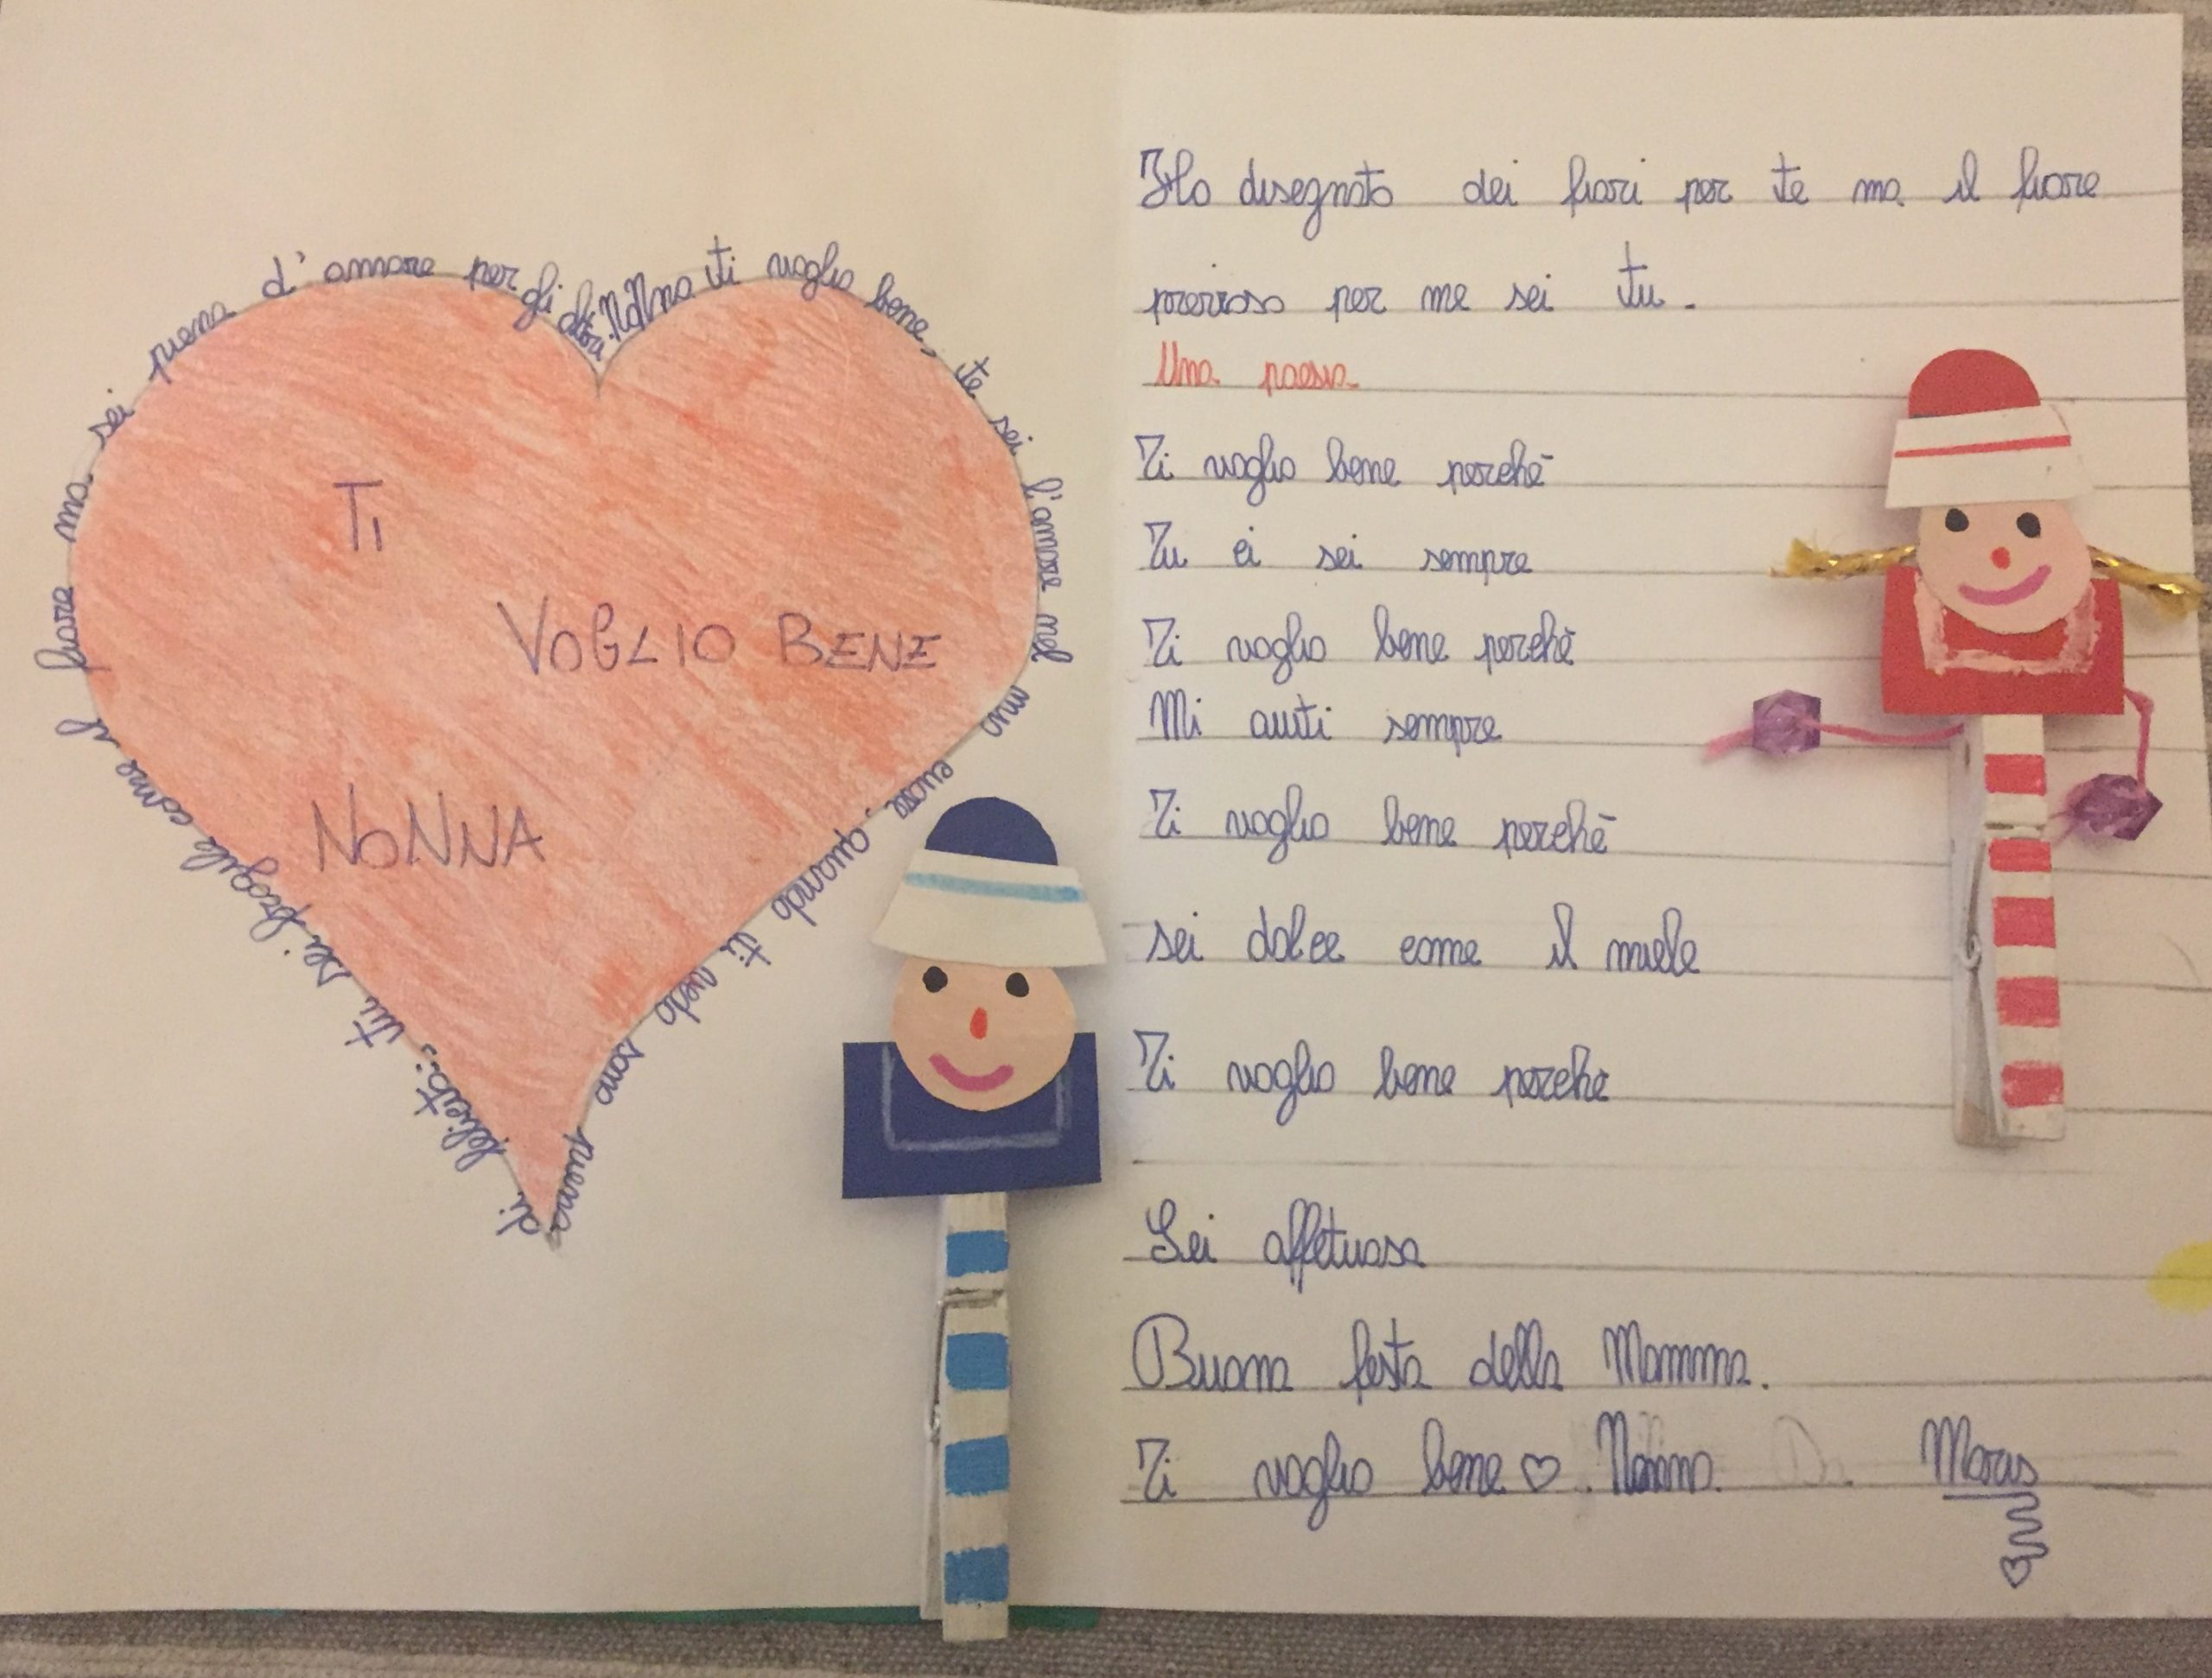 Nonna ti voglio bene, te sei l'amore nel mio cuore, quando ti vedo sono piena di felicità; tu sei fragile come il fiore ma sei piena d'amore per gli altri.
TI
VOGLIO BENE
NONNA
Ho disegnato dei fiori per te ma il fiore
prezioso per me sei tu.
Una poesia
Ti voglio bene perchè
Tu ci sei sempre
Ti voglio bene perchè
Mi aiuti sempre
Ti voglio bene perchè
sei dolce come il miele
Ti voglio bene perchè
Sei affetuosa
Buona festa della Mamma.
Ti voglio bene ♡. Nonna. Da